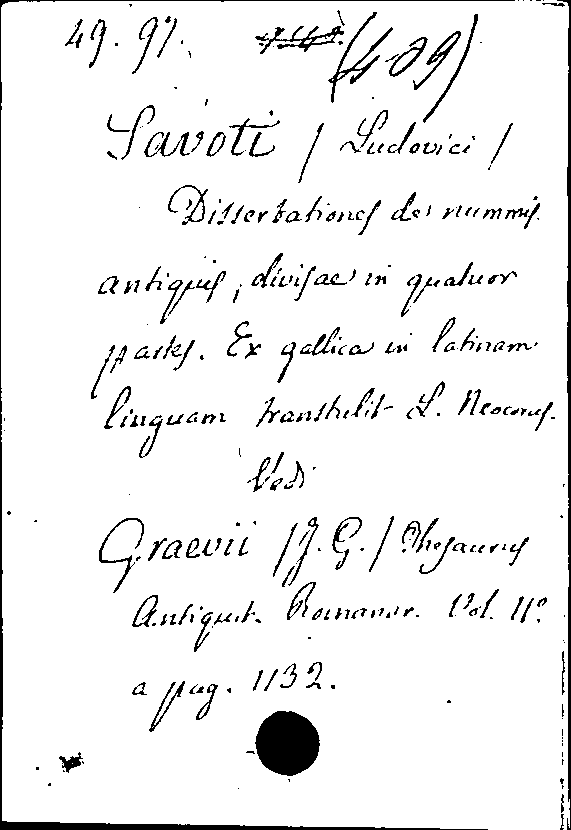 49. 97. (409)
Savoti / Ludovici /
Dissertationes de nummis
antiquis, divisae in quatuor
partes. Ex gallica in latinam
linguam transtulit L. Neocorus.
Vedi
Graevii / J. G. / Thesaurus
Antiquit. Romanor. Vol. 11º
a pag. 1132.